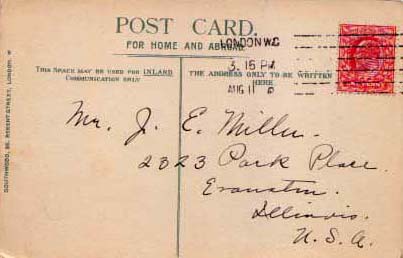 POST CARD.
FOR HOME AND ABROAD.
THIS SPACE MAY BE USED FOR INLAND
COMMUNICATION ONLY
THE ADDRESS ONLY TO BE WRITTEN
HERE
LONDON W.C
3.15 PM
AUG 11
Mr. J. E. Miller.
2323 Park Place.
Evanston.
Illinois.
U.S.A.
SOUTHWOOD, REGENT STREET, LONDON. W